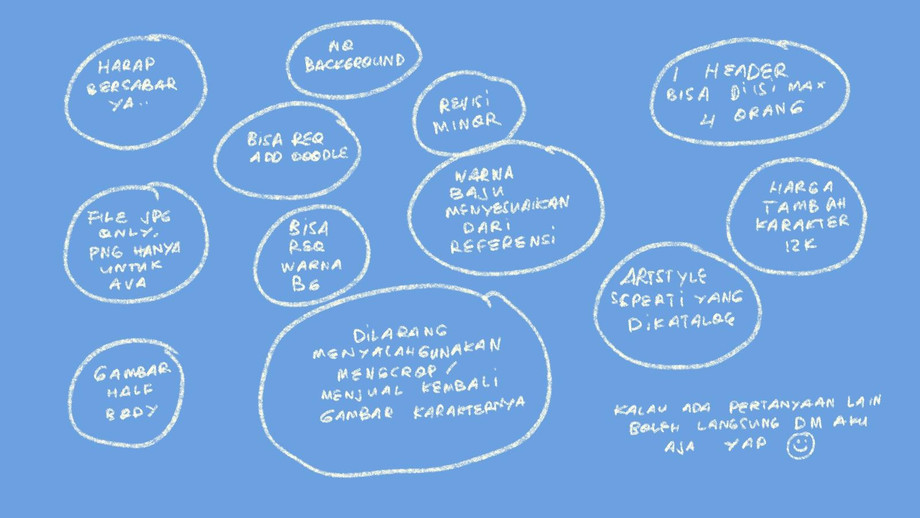 HARAP
BERSABAR
YA..
NO
BACKGROUND
REVISI
MINOR
1 HEADER
BISA DIISI MAX
4 ORANG
BISA REQ
ADD DOODLE
WARNA
BAJU
MENYESUAIKAN
DARI
REFERENSI
HARGA
TAMBAH
KARAKTER
12K
FILE JPG
ONLY.
PNG HANYA
UNTUK
AVA
BISA
REQ
WARNA
BG
ARTSTYLE
SEPERTI YANG
DIKATALOG
GAMBAR
HALF
BODY
DILARANG
MENYALAHGUNAKAN
MENGCROP/
MENJUAL KEMBALI
GAMBAR KARAKTERNYA
KALAU ADA PERTANYAAN LAIN
BOLEH LANGSUNG DM AKU
AJA YAP